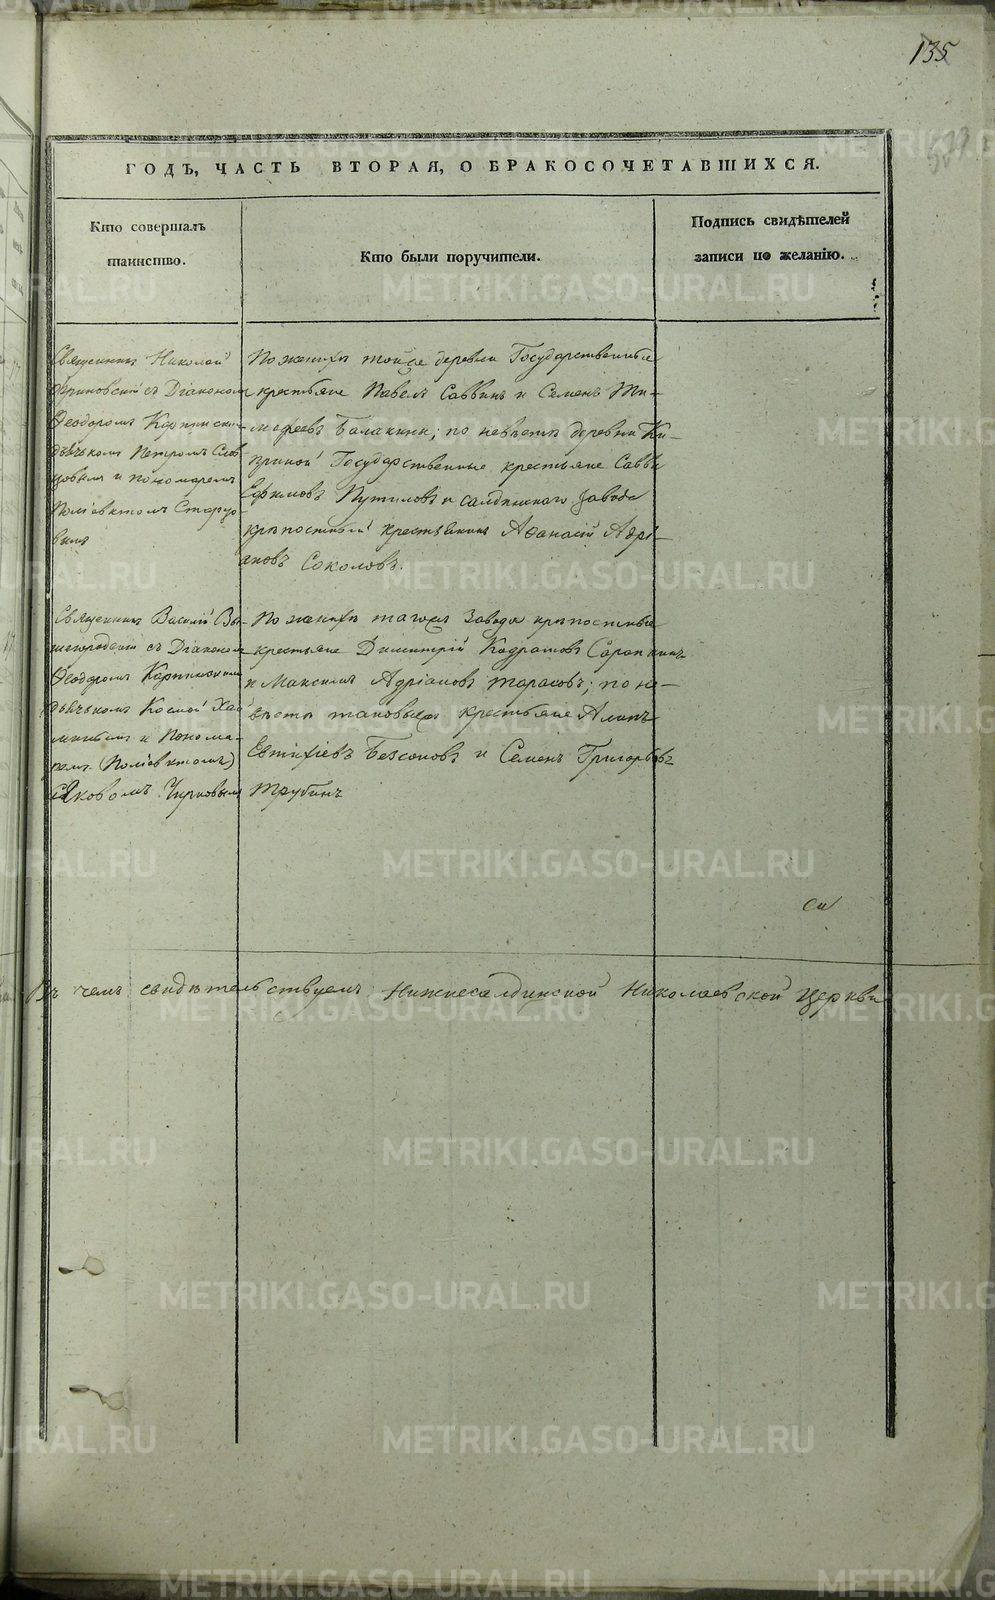 135
ГОДЪ, ЧАСТЬ ВТОРАЯ, О БРАКОСОЧЕТАВШИХСЯ.
Кто совершалъ
таинство.
Кто были поручители.
Подпись свидѣтелей
записи по желанію.
Священникъ Николай
съ Діакономъ
Ѳеодоромъ
дьячкомъ Петромъ Слов
цовымъ и пономаремъ
Поліевктомъ
По женихѣ тойже деревни Государственные
крестьяне Павелъ Саввинъ и Семенъ Ти-
моѳеевъ Балакины; по невѣстѣ деревни Ки-
приной Государственные крестьяне Савва
Ефимовъ Путиловъ и салдинскаго завода
крѣпостный крестьянинъ Аѳанасій Адрі-
ановъ Соколовъ.
Священникъ Василій Вы-
шегородскій съ Діакономъ
Ѳеодоромъ
дьячкомъ Космой
и Понома-
ремъ (Поліевктомъ)
Яковомъ
По женихѣ тагожъ завода крѣпостные
крестьяне Димитрій Кодратовъ
и Максимъ Адріановъ Тарасовъ; по не-
вѣстѣ таковыеже крестьяне
Евтихіевъ Безсоновъ и Семенъ Григорьевъ
Трубинъ
Въ чемъ свидѣтельствуемъ Нижнесалдинской Николаевской церкви
METRIKI.GASO-URAL.RU